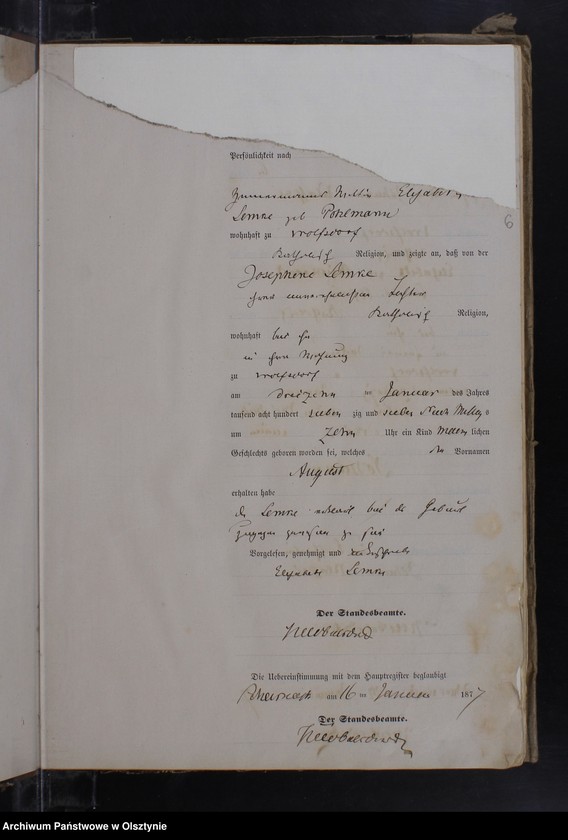 Persönlichkeit nach
Elisabeth
6
Lemke geb Pohlmann
wohnhaft zu Wolfsdorf
Katholisch Religion, und zeigte an, daß von der
Josephine Lemke
ihrer Tochter
Katholisch Religion,
wohnhaft bei ihr
in ihrer Wohnung
zu Wolfsdorf
am dreizehn ten Januar des Jahres
tausend acht hundert sieben zig und sieben Nach Mittags
um Zehn Uhr ein Kind männ lichen
Geschlechts geboren worden sei, welches den Vornamen
August
erhalten habe
Lemke bei der Geburt
zugegen gewesen zu sein
Vorgelesen, genehmigt und
Elisabeth Lemke
Der Standesbeamte.
Die Uebereinstimmung mit dem Hauptregister beglaubigt
am 16 ten Januar 1877
Der Standesbeamte.
Archiwum Państwowe w Olsztynie